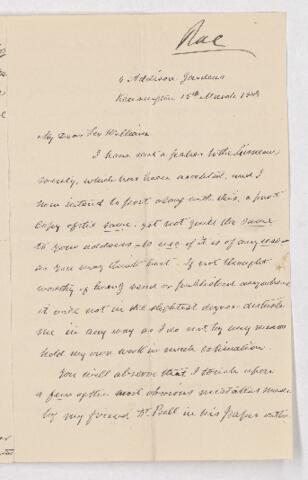 Rae
4 Addison Gardens
Kensington 15th March 188
My Dear Sir William
I have sent a paper to the Linnean
Society, which has been accepted, and I
now intend to post along with this, a
copy of the same, yet not quite the same
to your address to use if it is of any use
as you may think best. If not thought
worthy of being send or published anywhere
it will not in the slightest degree distress
me in any way as I do not by any means
hold my own work in much estimation.
You will observe that I touch upon
a few of the most obvious mistakes made
by my friend Dr. Bell in his paper